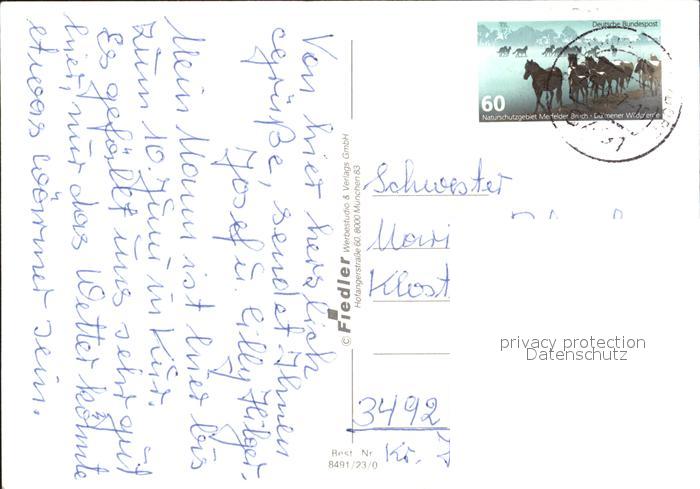 Von hier herzlich
Grüße, sendet Ihnen
Josef u. Cilly Hilger.
Mein Mann ist hier bis
zum 10. Juni in Kur.
Es gefällt uns sehr gut
hier, nur das Wetter könnte
etwas wärmer sein.
© Fiedler Werbestudio & Verlags GmbH
Hofangerstraße 60, 8000 München 83
Best. Nr.
8491/23/0
Deutsche Bundespost
60
Naturschutzgebiet Merfelder Bruch · Dülmener Wildpferde
Schwester
Mari
Klost
privacy protection
Datenschutz
3492
Kr.